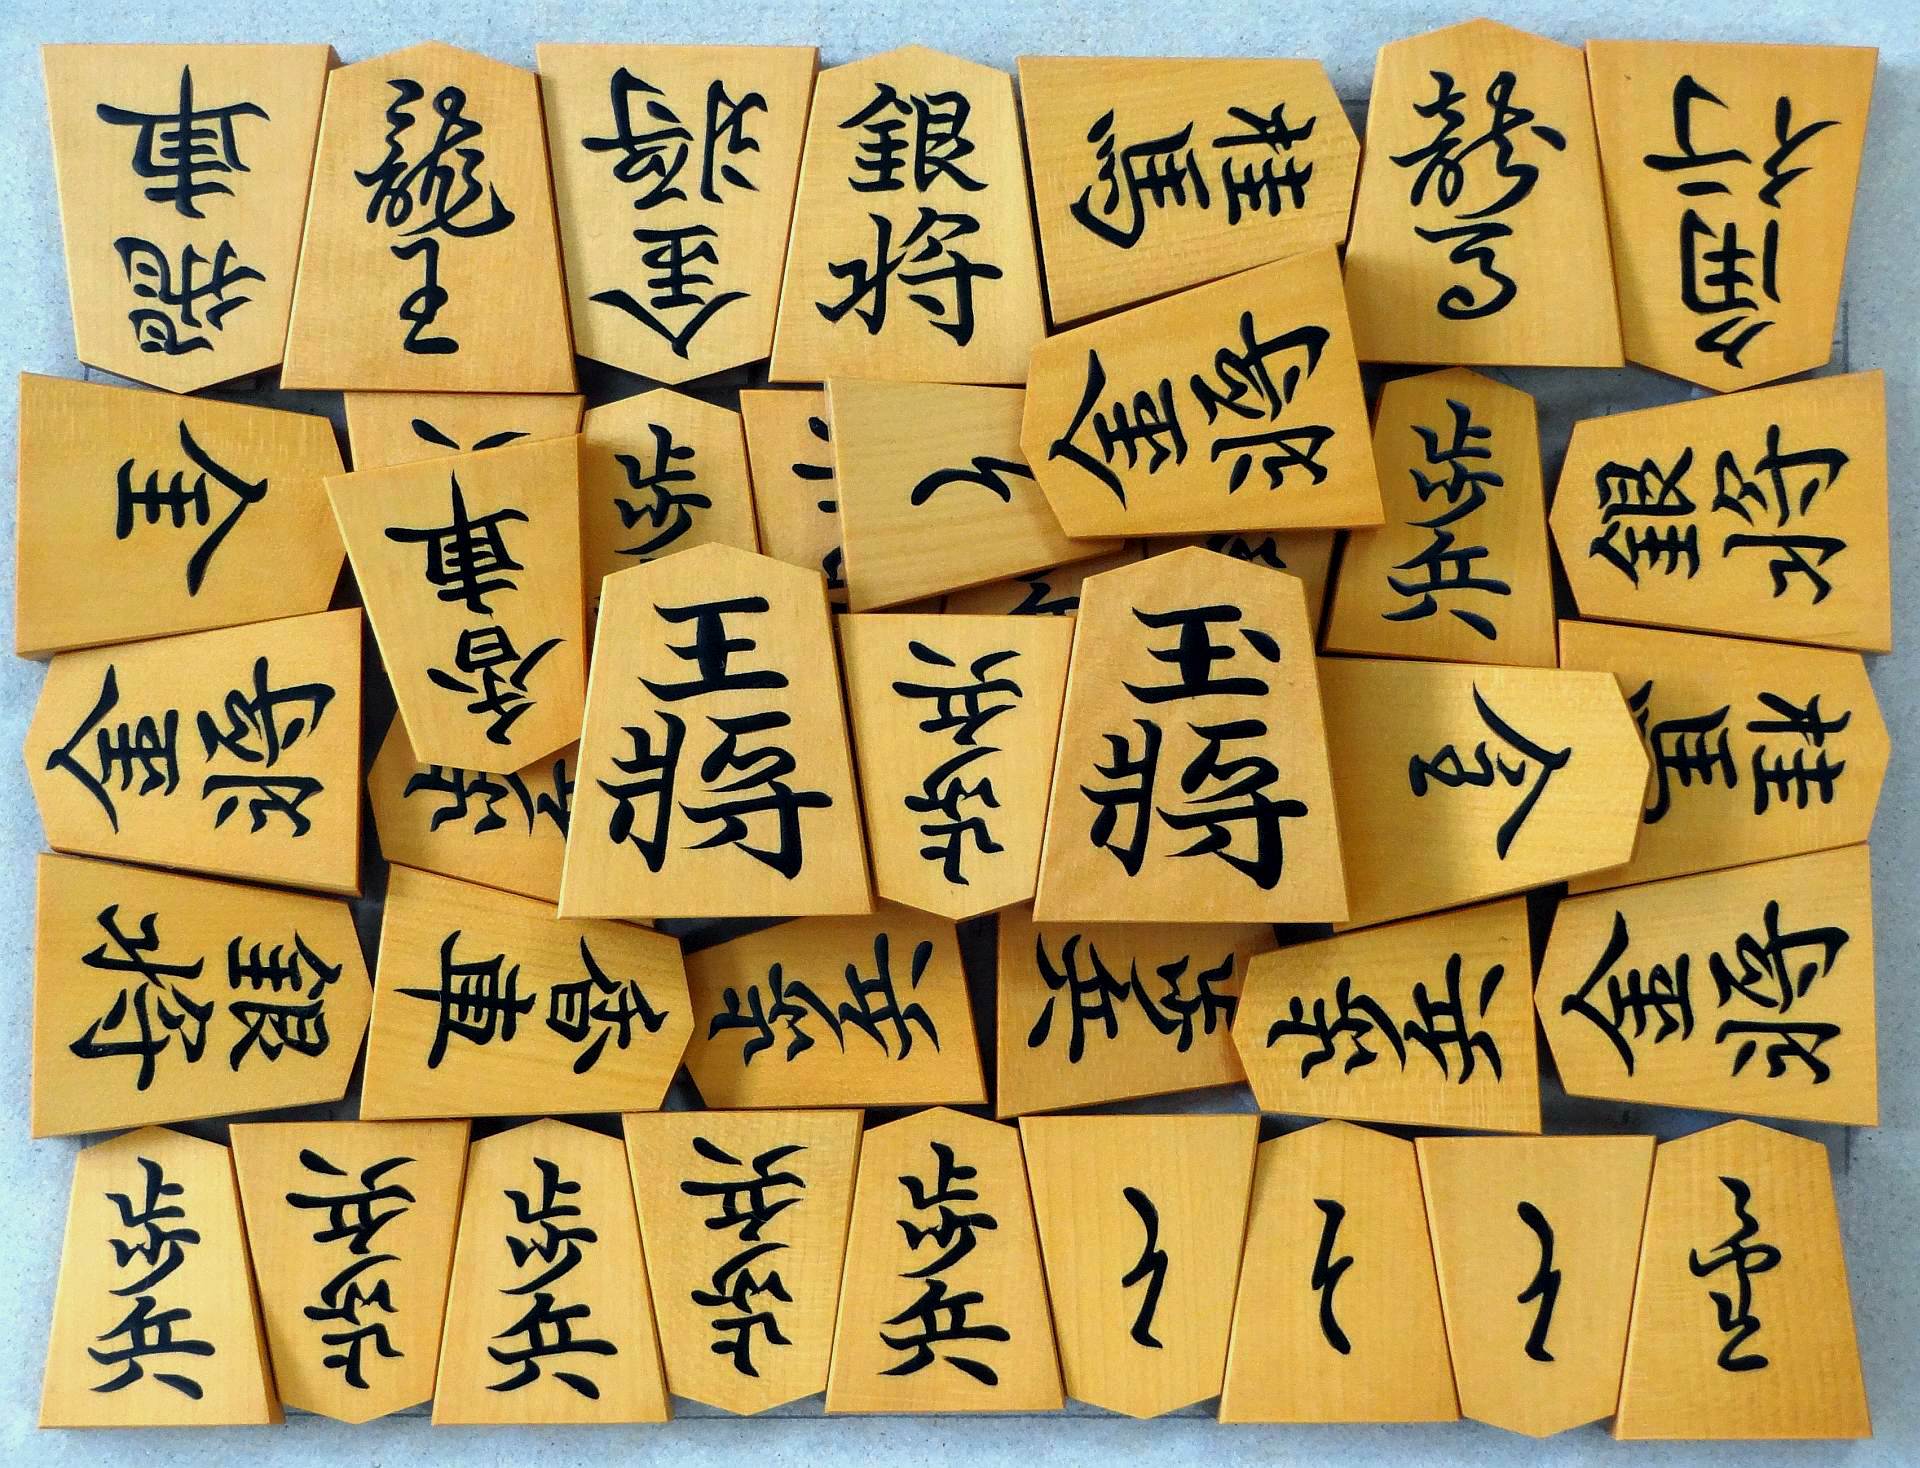 飛車
龍王
金将
銀将
桂馬
龍馬
角行
香車
歩兵
と
金将
歩兵
銀将
金将
王將
歩兵
玉將
桂馬
銀将
香車
歩兵
歩兵
歩兵
金将
歩兵
歩兵
歩兵
歩兵
歩兵
と
と
と